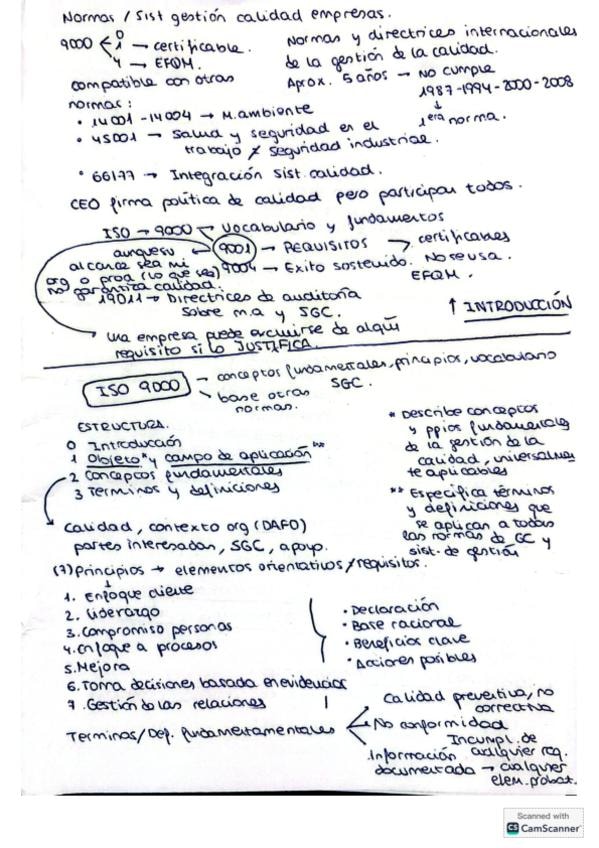 Normas / Sist gestión calidad empresas.
9000
0
1 → certificable.
4 → EFQM.
Normas y directrices internacionales
de la gestión de la calidad.
Aprox. 5 años → NO cumple
1987-1994-2000-2008
↓
1era norma.
compatible con otras
normas:
• 14001-14004 → M.ambiente
• 45001 → Salud y seguridad en el
trabajo ≠ seguridad industrial.
• 66177 → Integración Sist. calidad.
CEO firma política de calidad pero participan todos.
ISO → 9000 → Vocabulario y fundamentos
9001 → REQUISITOS → certificables
aunque su
alcance sea mi
org o prod (lo que sea)
no garantiza calidad.
9004 → Exito sostenido. No se usa.
EFQM.
19011 → Directrices de auditoría
sobre m.a y SGC.
↑ INTRODUCCIÓN
→ Una empresa puede excluirse de algún
requisito si lo JUSTIFICA.
ISO 9000
→ conceptos fundamentales, principios, vocabulario
SGC.
→ base otras
normas.
ESTRUCTURA.
0 Introducción
1 Objeto* y campo de aplicación**
2 Conceptos fundamentales
3 Terminos y definiciones
* Describe conceptos
y ppios fundamentales
de la gestión de la
calidad, universalmente
aplicables
** Especifica términos
y definiciones que
se aplican a todas
las normas de GC y
sist. de gestión
Calidad, contexto org (DAFO)
partes interesadas, SGC, apoyo.
(7) Principios → elementos orientativos/requisitos.
↓
1. Enfoque cliente
2. Liderazgo
3. Compromiso personas
4. Enfoque a procesos
5. Mejora
6. Toma decisiones basada en evidencias
7. Gestión de las relaciones
• Declaración
• Base racional
• Beneficios clave
• Acciones posibles
Terminos/Def. fundamertamentales
Calidad preventiva, no
correctiva
No conformidad
Incumpl. de
cualquier req.
Información
documentada → cualquier
elem. probat.
Scanned with
CS CamScanner